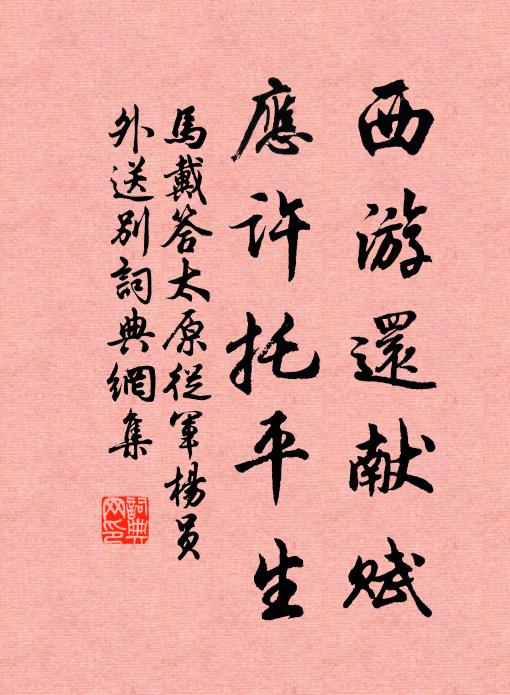 西游還献賦
應许托平生
馬戴答太原從軍楊員
外送别詞典網集
詞典网印